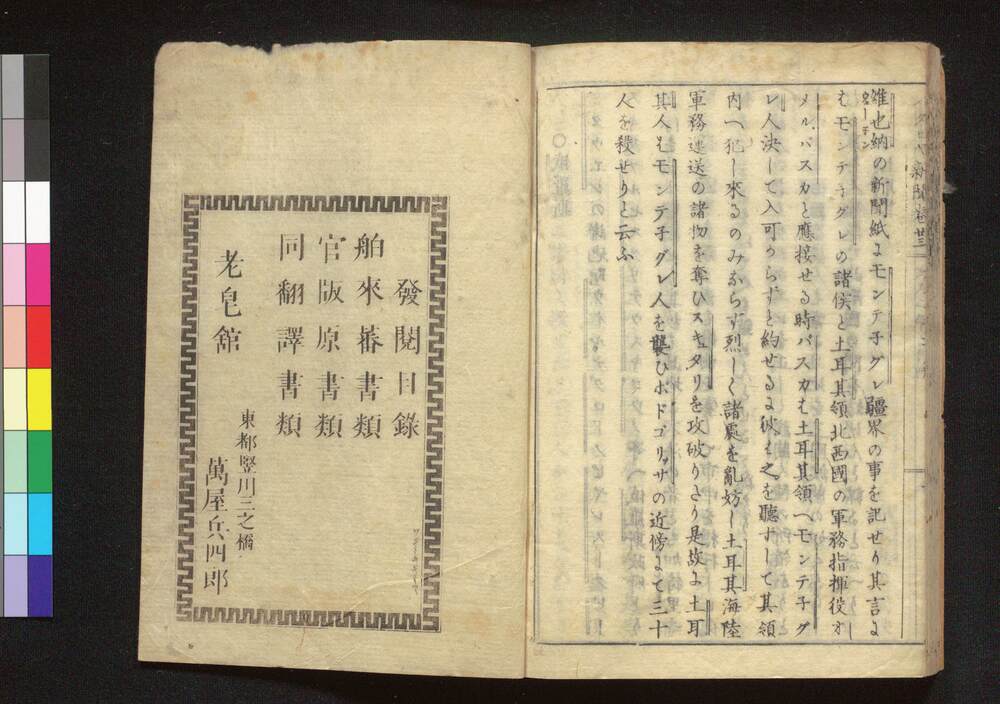 維也納の新聞紙にモンテ子グレ疆界の事を記せり其言に
ウーエン
はモンテ子グレの諸侯と土耳其領北西國の軍務指揮役オ
メル、パスカと應接せる時パスカは土耳其領へモンテ子グ
レ人決して入可からずと約せるに彼は之を聽ずして其領
内へ犯し來るのみならず烈しく諸處を亂妨し土耳其海陸
軍務運送の諸物を奪ひスキュタリを攻破りたり是故に土耳
其人はモンテ子グレ人を襲ひホドゴリッサの近傍にて三十
人を殺せりと云ふ
新聞卷廿三
發閱目錄
舶來蕃書類
官版原書類
同翻譯書類
老皂館
東都竪川三之橋
萬屋兵四郎